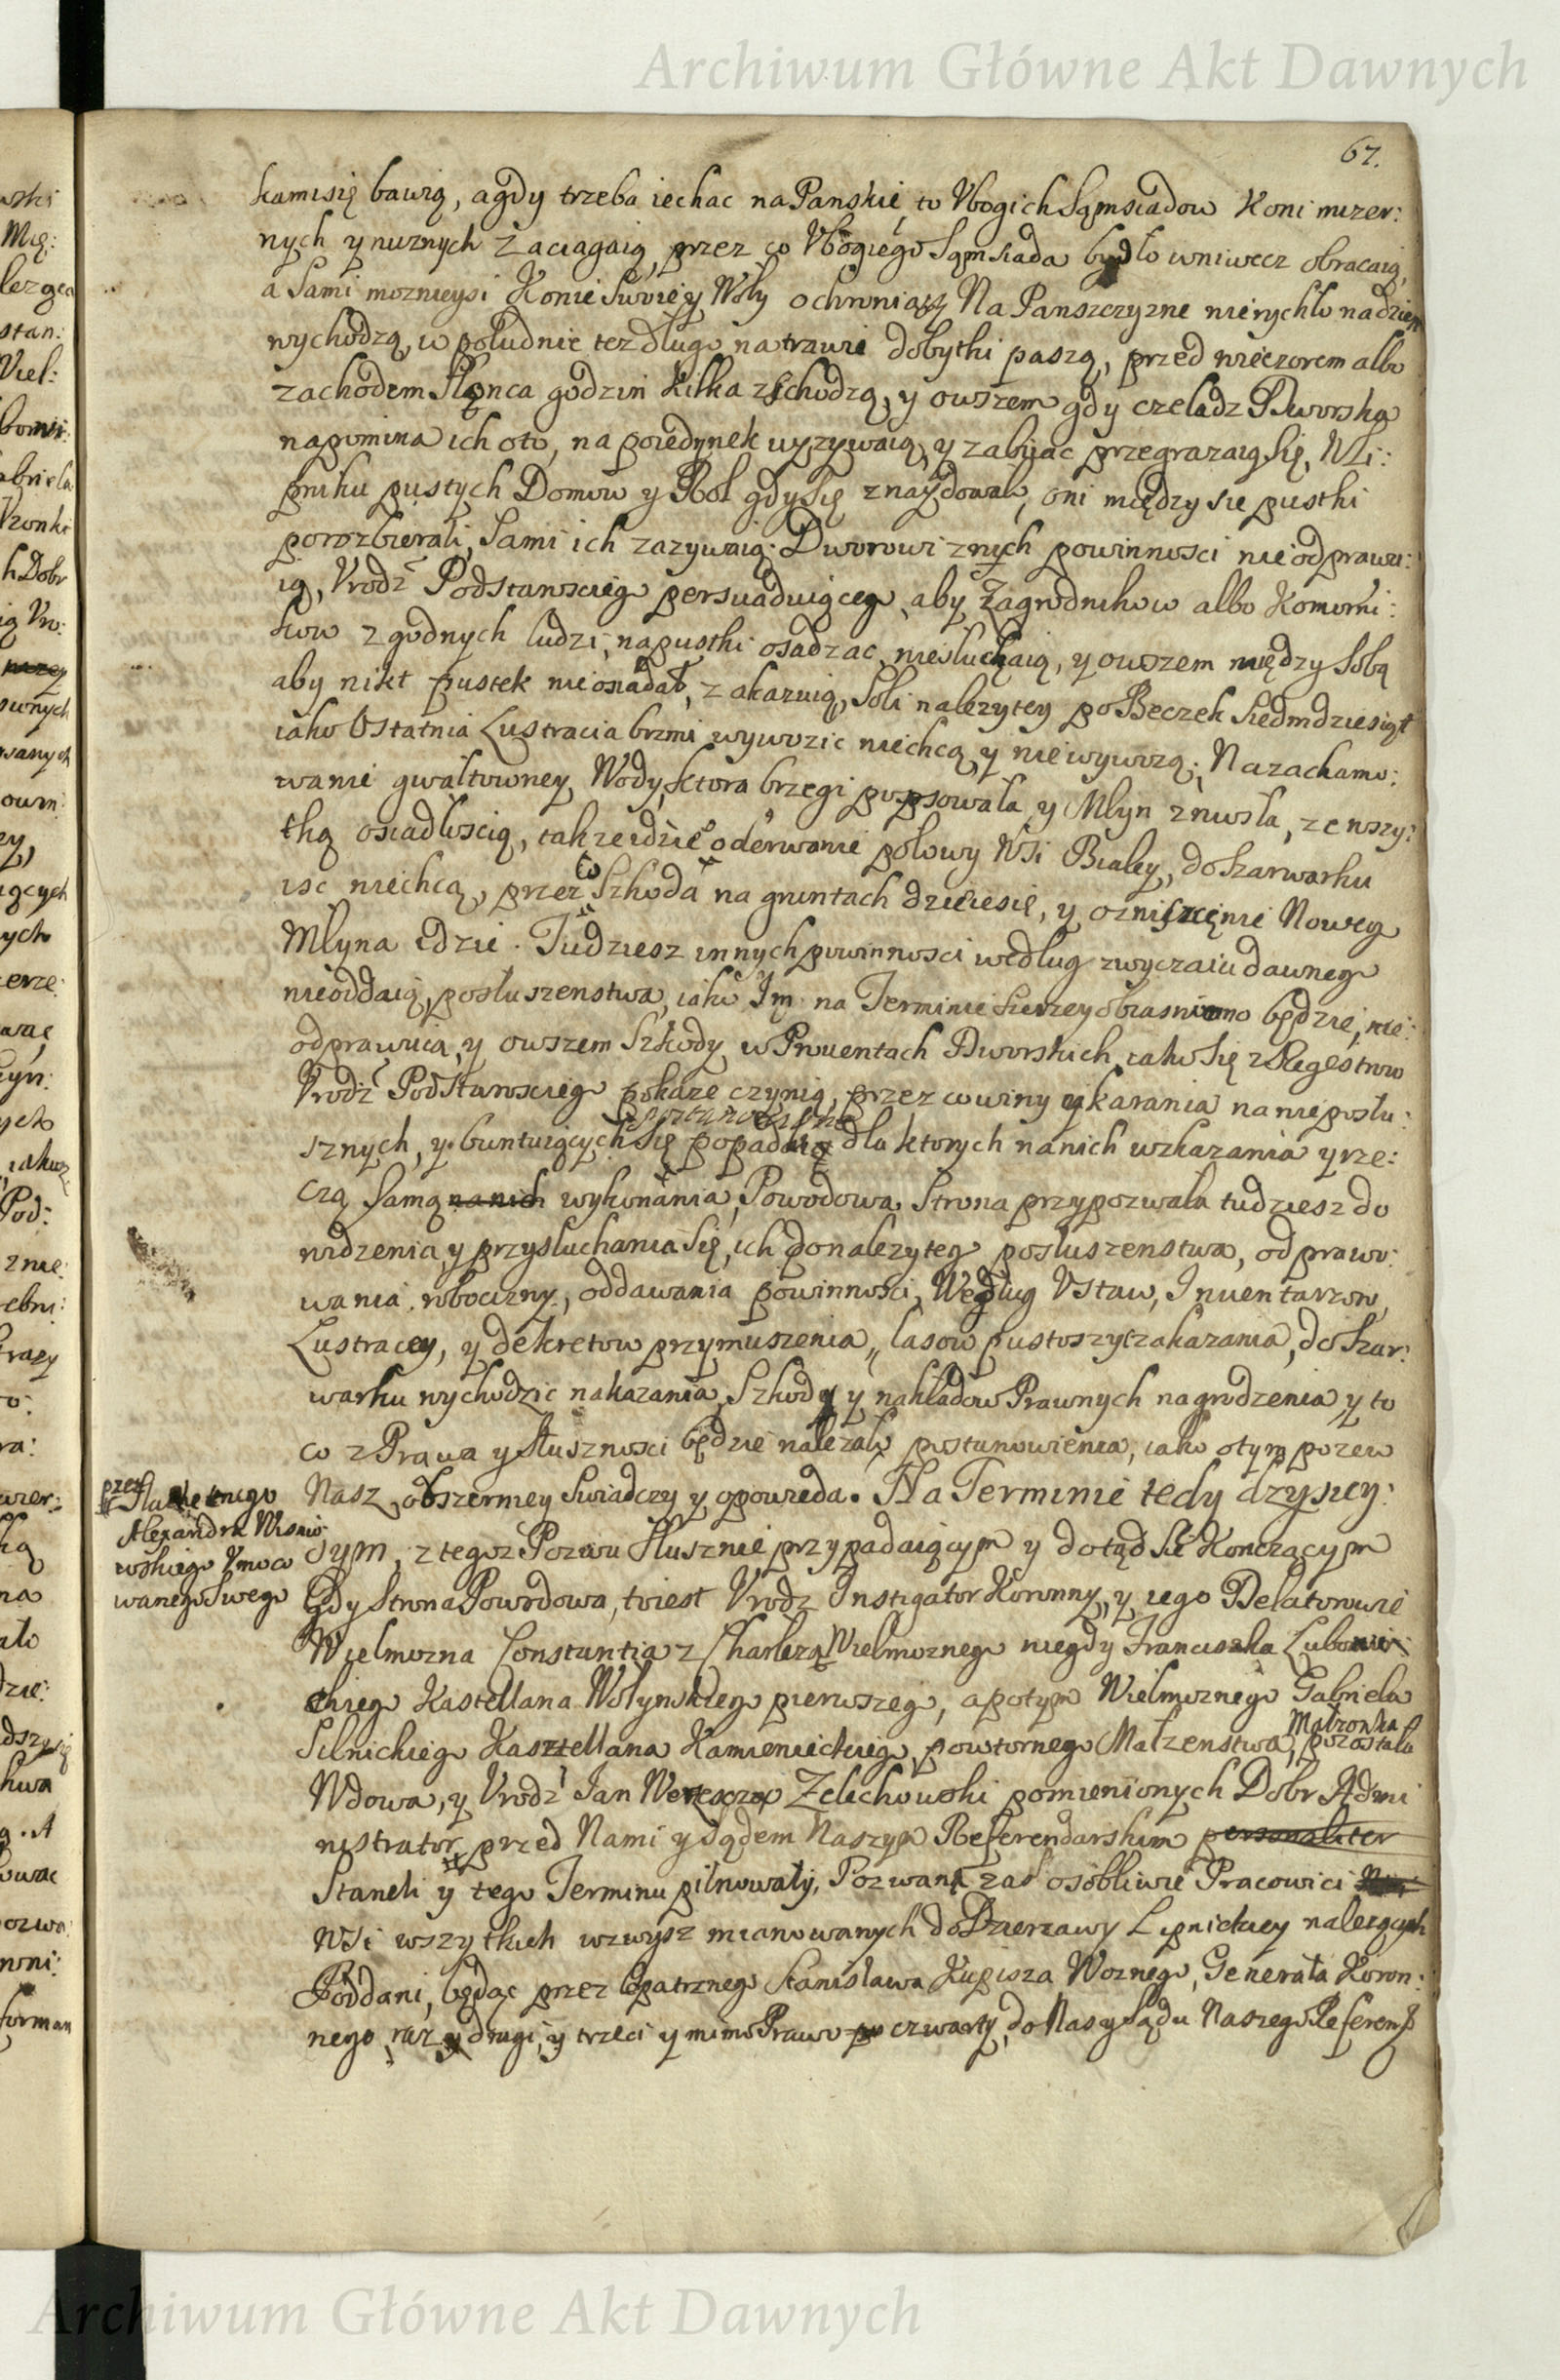 Archiwum Główne Akt Dawnych
67.
kamisię bawią, agdy trzeba iechac na Panskie, to Vbogich Sąmsiadow Koni mizer:
nych y nuznych zaciagaią, przez co Vbogiego Sąmsiada bydło wniwecz obracaią,
a Sami moznieysi Konie Swoie y Woły ochraniaią Na Panszczyzne nierychło nadzien
wychodzą, w południe tez długo natrawie dobytki paszą, przed wieczorem albo
zachodem Słonca godzin kilka zschodzą, y owszem gdy czeladz Dworska
napomina ich oto, na poiedynek wyzywaią, y zabijac przegrazaią Się, WLi:
pniku pustych Domow y Rol gdy Się znaydowało, oni między sie pustki
porozbierali, Sami ich zazywaią. Dworowi znich powinnosci nie odprawu:
ią, Vrodź Podstarosciego persuaduiącego, aby Zagrodnikow albo Komorni:
kow zgodnych ludzi, napustki osadzac, niesłuchaią, y owszem między Sobą
aby nikt pustek nieosiadał, zakazuią, Soli nalezytey po Beczek Siedmdziesiąt
iako Ostatnia Lustracia brzmi wywozic niechcą, y niewywozą; Nazachamo:
wanie gwałtowney Wody, ktora brzegi popsowała, y Młyn zniosła, ze wszy:
tką osiadłoscią, takze idzie o oderwanie połowy Wsi Białey, doSzarwarku
isc niechcą, przez to Szkoda na gruntach dzieiesię, y ozniszczęnie Nowego
Młyna idzie. Tudziesz innych powinnosci według zwyczaiu dawnego
nieoddaią, posłuszenstwa, iako Im na Terminie szerzey obiasniono będzie, nie:
odprawuią, y owszem Szkody w Prouentach Dworskich, iako Się z Regestrow
Vrodź Podstarosciego pokaze czynią, przez co winy y karania na nieposłu:
sznych, y buntuiących Się popadaią dla ktorych nanich wskazania y rze:
czą Samą nanich wykonania, Powodowa Strona przypozwała tudziesz do
widzenia, y przysłuchania Się, ich do nalezytego posłuszenstwa, odprawo:
wania robocizny, oddawania powinnosci, Według Vstaw, Inuentarzow,
Lustracey, y dekretow przymuszenia, lasow pustoszyc zakazania, do Szar:
warku wychodzic nakazania, Szkody y nakładow Prawnych nagrodzenia y to
co z Prawa y Słusznosci będzie nalezało postanowienia, iako otym pozew
Nasz obszerniey Swiadczy y opowieda. Na Terminie tedy dzysiey:
przez Slachetnego
Alexandra Wisnio
wskiego Vmoco
wanego Swego
szym, ztegoż Pozwu Słusznie przypadaiącym y dotąd Się Konczącym
Gdy Strona Powodowa, toiest Vrodz Instigator Koronny, y iego Delatorowie
Wielmozna Constantia z Wielmoznego niegdy Franciszka
skiego Kastellana Wołynskiego pierwszego, apotym Wielmoznego Gabriela
Silnickiego Kasztellana Kamienieckiego, powtornego Małzenstwa, Małzonka pozostała
Wdowa, y Vrodź Jan Zelechowski pomienionych Dobr Admi
nistrator, przed Nami y Sądem Naszym Referendarskim personaliter
Staneli y tego Terminu pilnowały, Pozwani zas osobliwie Pracowici
Wsi wszytkich wzwysz mianowanych do Dzierzawy Lipnickiey nalezących
Poddani, będąc przez Opatrznego Stanisława Kupisza Woznego, Generała Koron:
nego, raz y drugi, y trzeci y mimo Prawo czwarty, do Nas y Sądu Naszego Referend
Archiwum Główne Akt Dawnych